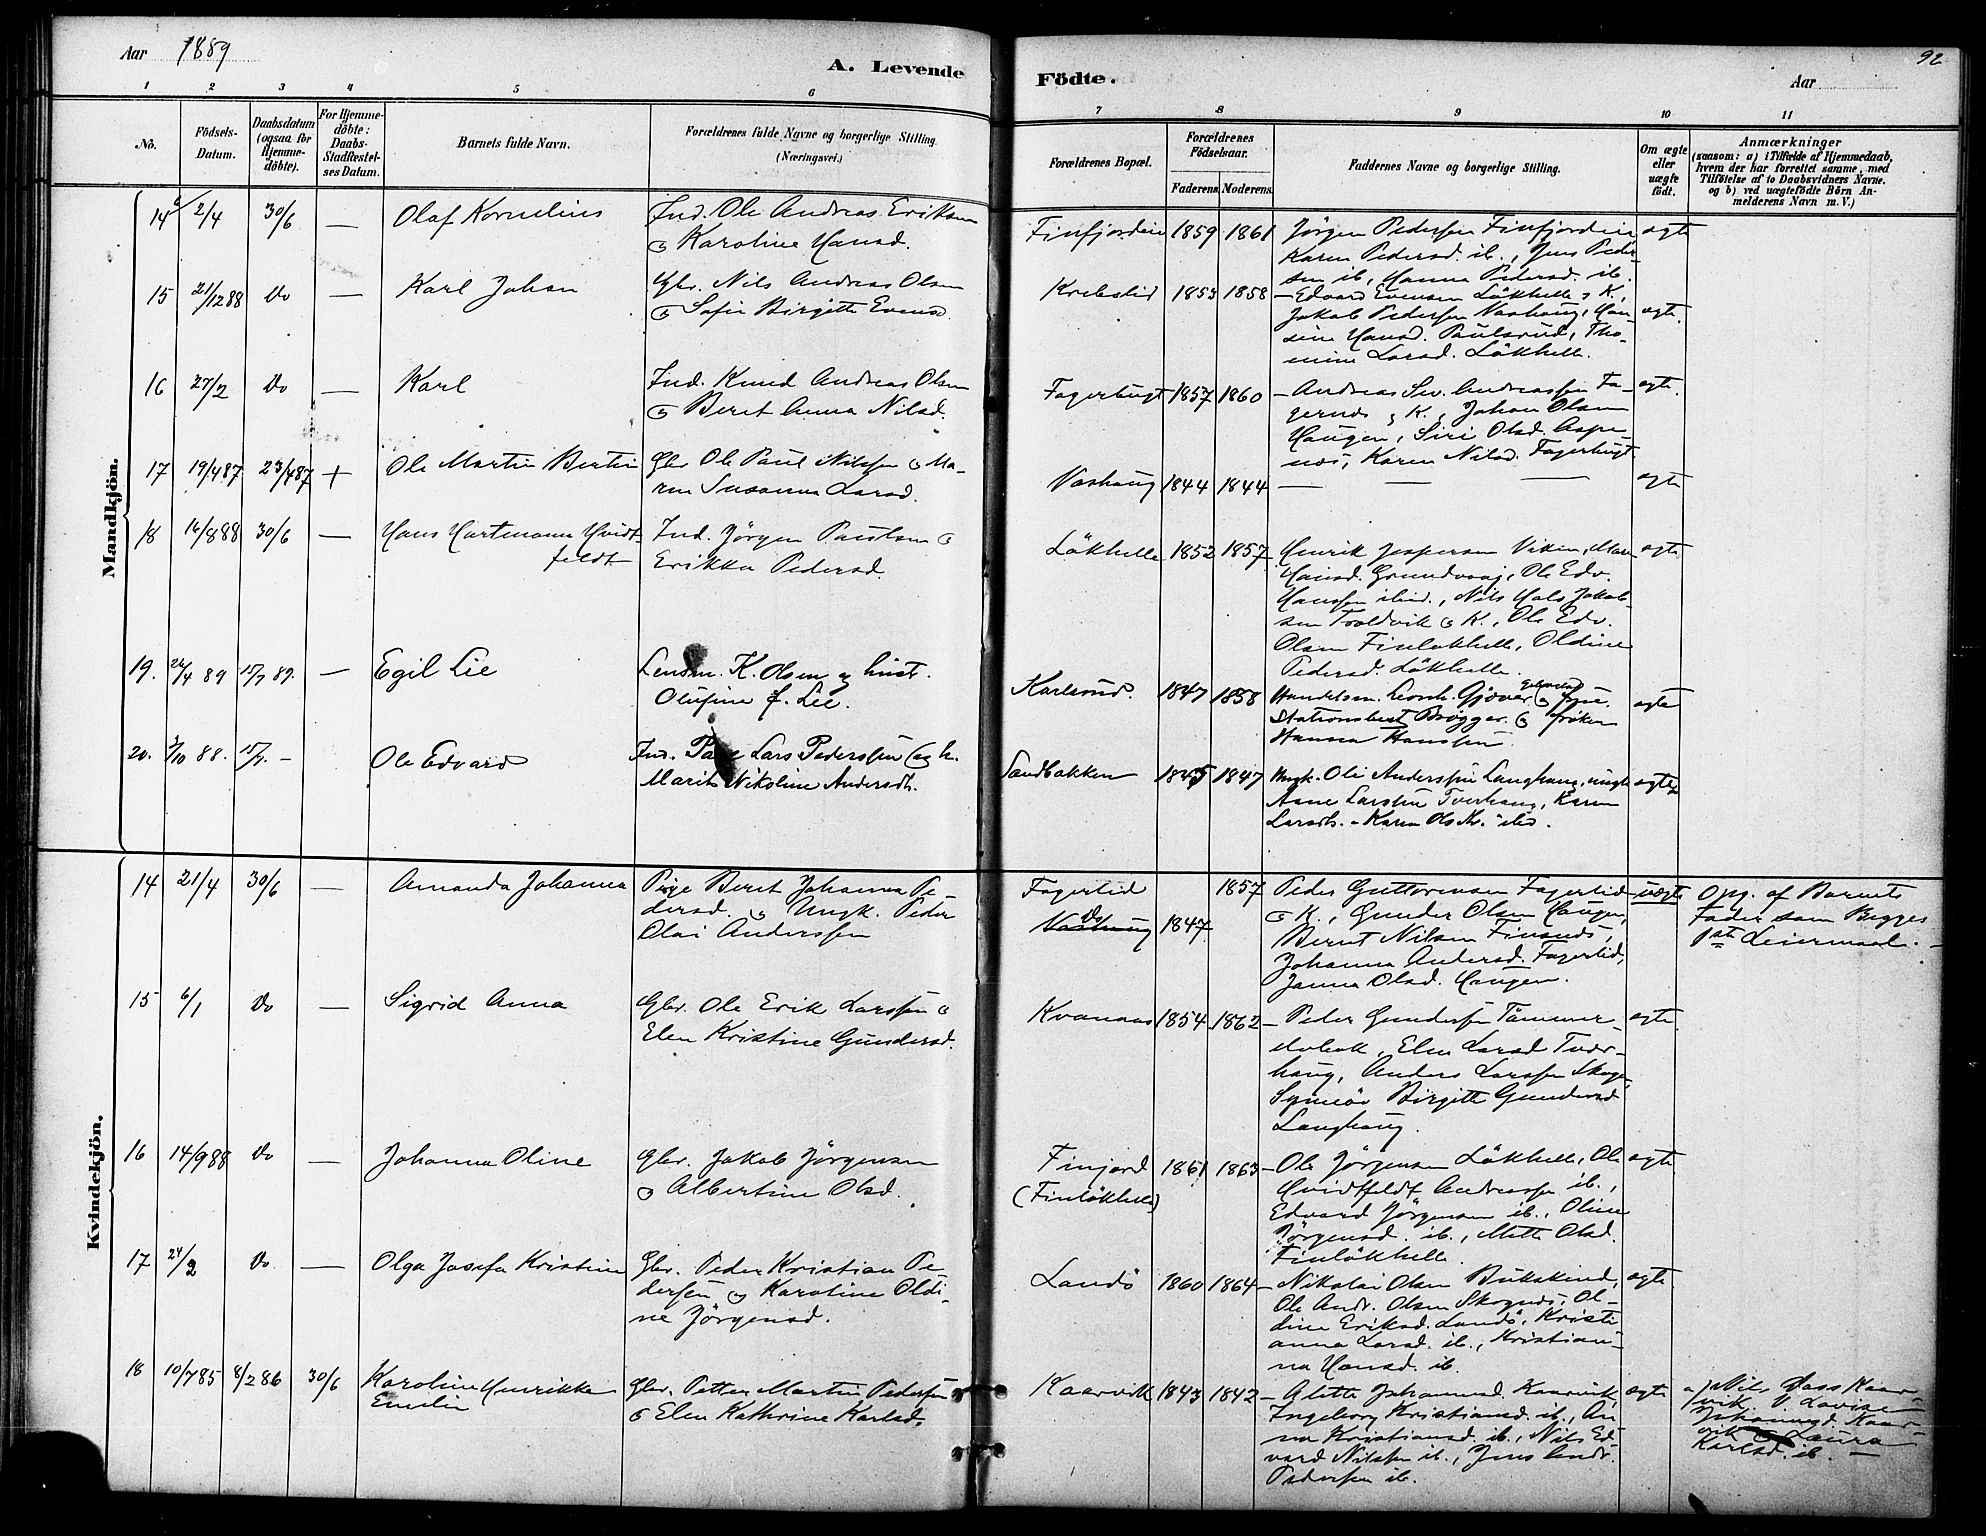 Aar 1889
A. Levende Födte.
Aar
92
1 2 3 4 5 6 7 8 9 10 11
No.
Födsels-
Datum.
Daabsdatum
(ogsaa for
Hjemme-
döbte).
For Hjemme-
döbte:
Daabs-
Stadfæstel-
ses Datum.
Barnets fulde Navn.
Forældrenes fulde Navne og borgerlige Stilling.
(Næringsvei.)
Forældrenes Bopæl.
Forældrenes
Födselsaar.
Faderens. Moderens.
Faddernes Navne og borgerlige Stilling.
Om ægte
eller
uægte
födt.
Anmærkninger
(saasom: a) i Tilfælde af Hjemmedaab,
hvem der har forrettet samme, med
Tilföielse af to Daabsvidners Navne,
og b) ved uægtefödte Börn An-
melderens Navn m. V.)
Mandkjön.
14 2/4 30/6 — Olaf Kornelius
Ind. Ole Andreas Eriksen
o Karoline Hansd.
Finfjorden 1859 1861
Jörgen Pedersen Finfjorden
Karen Pedersd. ib., Jens Peder-
sen ib, Hanna Pedersd. ib.
ægte
15 21/12 88 Do — Karl Johan
Gbr. Nils Andreas Olsen
o Sofie Birgitte Evensd.
Krebstid 1853 1858
— Edvard Evensen Lökhelle & K.,
Jakob Pedersen Vashaug, Han-
sine Hansd. Paulsrud, Tho-
mine Larsd. Lökhelle.
ægte.
16 27/2 Do — Karl
Ind. Knud Andreas Olsen
o Beret Anna Nilsd.
Fagerbugt 1857 1860
— Andreas Sev. Andreassen Fa-
gernes & K., Johan Olsen
Haugen, Siri Olsd. Aspe-
nes, Karen Nilsd. Fagerbugt
ægte.
17 19/4 87 23/4 87 + Ole Martin Bertin
Gbr Ole Paul Nilssen o Ma-
ren Susanna Larsd.
Vashaug 1844 1844 — — —
ægte
18 16/8 88 30/6 — Hans Hartmann Hvidt-
feldt
Ind. Jörgen Paulsen o
Erikka Pedersd.
Lökhelle 1852 1857
Henrik Jespersen Viken, Mare
Hansd. Grundvaag, Ole Edv.
Hanssen ibid., Nils Hals Jakob-
sen Troldvik o K., Ole Edv.
Olsen Finlökhelle, Oldine
Pedersd. Lökhelle.
ægte
19. 24/4 89 15/7 89. — Egil Lie
Lensm. K. Olsen og hust.
Olufine f. Lie.
Karlsrud. 1847 1858
Handelsm. Leonh. Gjæver o frue
Stationsbest Brögger. o fröken
Hansen
ægte
20. 3/10 88. 15/7. — Ole Edvard
Ind. Lars Pederssen (og h.
Marit Nikoline Andersdt.
Sandbakken 1845 1847
Ungk. Ole Anderssen Langhaug, ungk
Aane Larssen Tverhaug, Karen
Larsdt. - Karen Ols dt. ibid.
ægte
Kvindekjön.
14 21/4 30/6 — Amanda Johanna
Pige Beret Johanna Pe-
dersd. o Ungk. Peder
Olai Anderssen
Fagerlid 1857
Do
Vashaug 1847
Peder Guttormsen Fagerlid
o K., Gunder Olsen Haugen,
Bernt Nilsen Finsnes,
Johanna Andersd. Fagerlid,
Janna Olsd. Haugen.
uægte
Opg. af Barnets
Fader som Begges
1ste Leiermaal. —
15 6/1 Do — Sigrid Anna
Gbr. Ole Erik Larssen o
Elen Kristine Gundersd.
Kvannaas 1854 1862
— Peder Gundersen Tömmer-
, Elen Larsd Tver-
haug, Anders Larssen Skogen,
Synnöv Birgitte Gundersd
Langhaug.
ægte
16 14/9 88 Do — Johanna Oline
Gbr. Jakob Jörgensen
o Albertine Olsd.
Finjord
(Finlökhelle) 1861 1863
— Ole Jörgensen Lökhelle, Ole
Hvidtfeldt Andreassen ib.,
Edvard Jörgensen ib., Oline
Jörgensd. ib., Mette Olsd.
Finlökhelle.
ægte
17 24/2 Do — Olga Josefa Kristine
Gbr. Peder Kristian Pe-
dersen o Karoline Oldi-
ne Jörgensd.
Landö 1860 1864
— Nikolai Olsen Bukskind,
Ole Andr. Olsen Skognes, Ol-
dine Eriksd. Landö, Kristi-
anna Larsd. ib., Kristian-
na Hansd. ib.
ægte
18 10/7 85 8/2 86 30/6 Karoline Henrikke
Emelie
Gbr. Petter Martin Pedersen
o Elen Kathrine Karlsd.
Kaarvik 1843 1842
— Alette Johannesd. Kaarvik,
Ingeborg Kristiansd. ib., An-
na Kristiansd. ib., Nils Ed-
vard Nilssen ib., Jens
Pedersen ib.
ægte
a) Nils Dass Kaar-
vik. V. Lovise
Johannesd. Kaar-
vik o Laura
Karlsd. ib. —